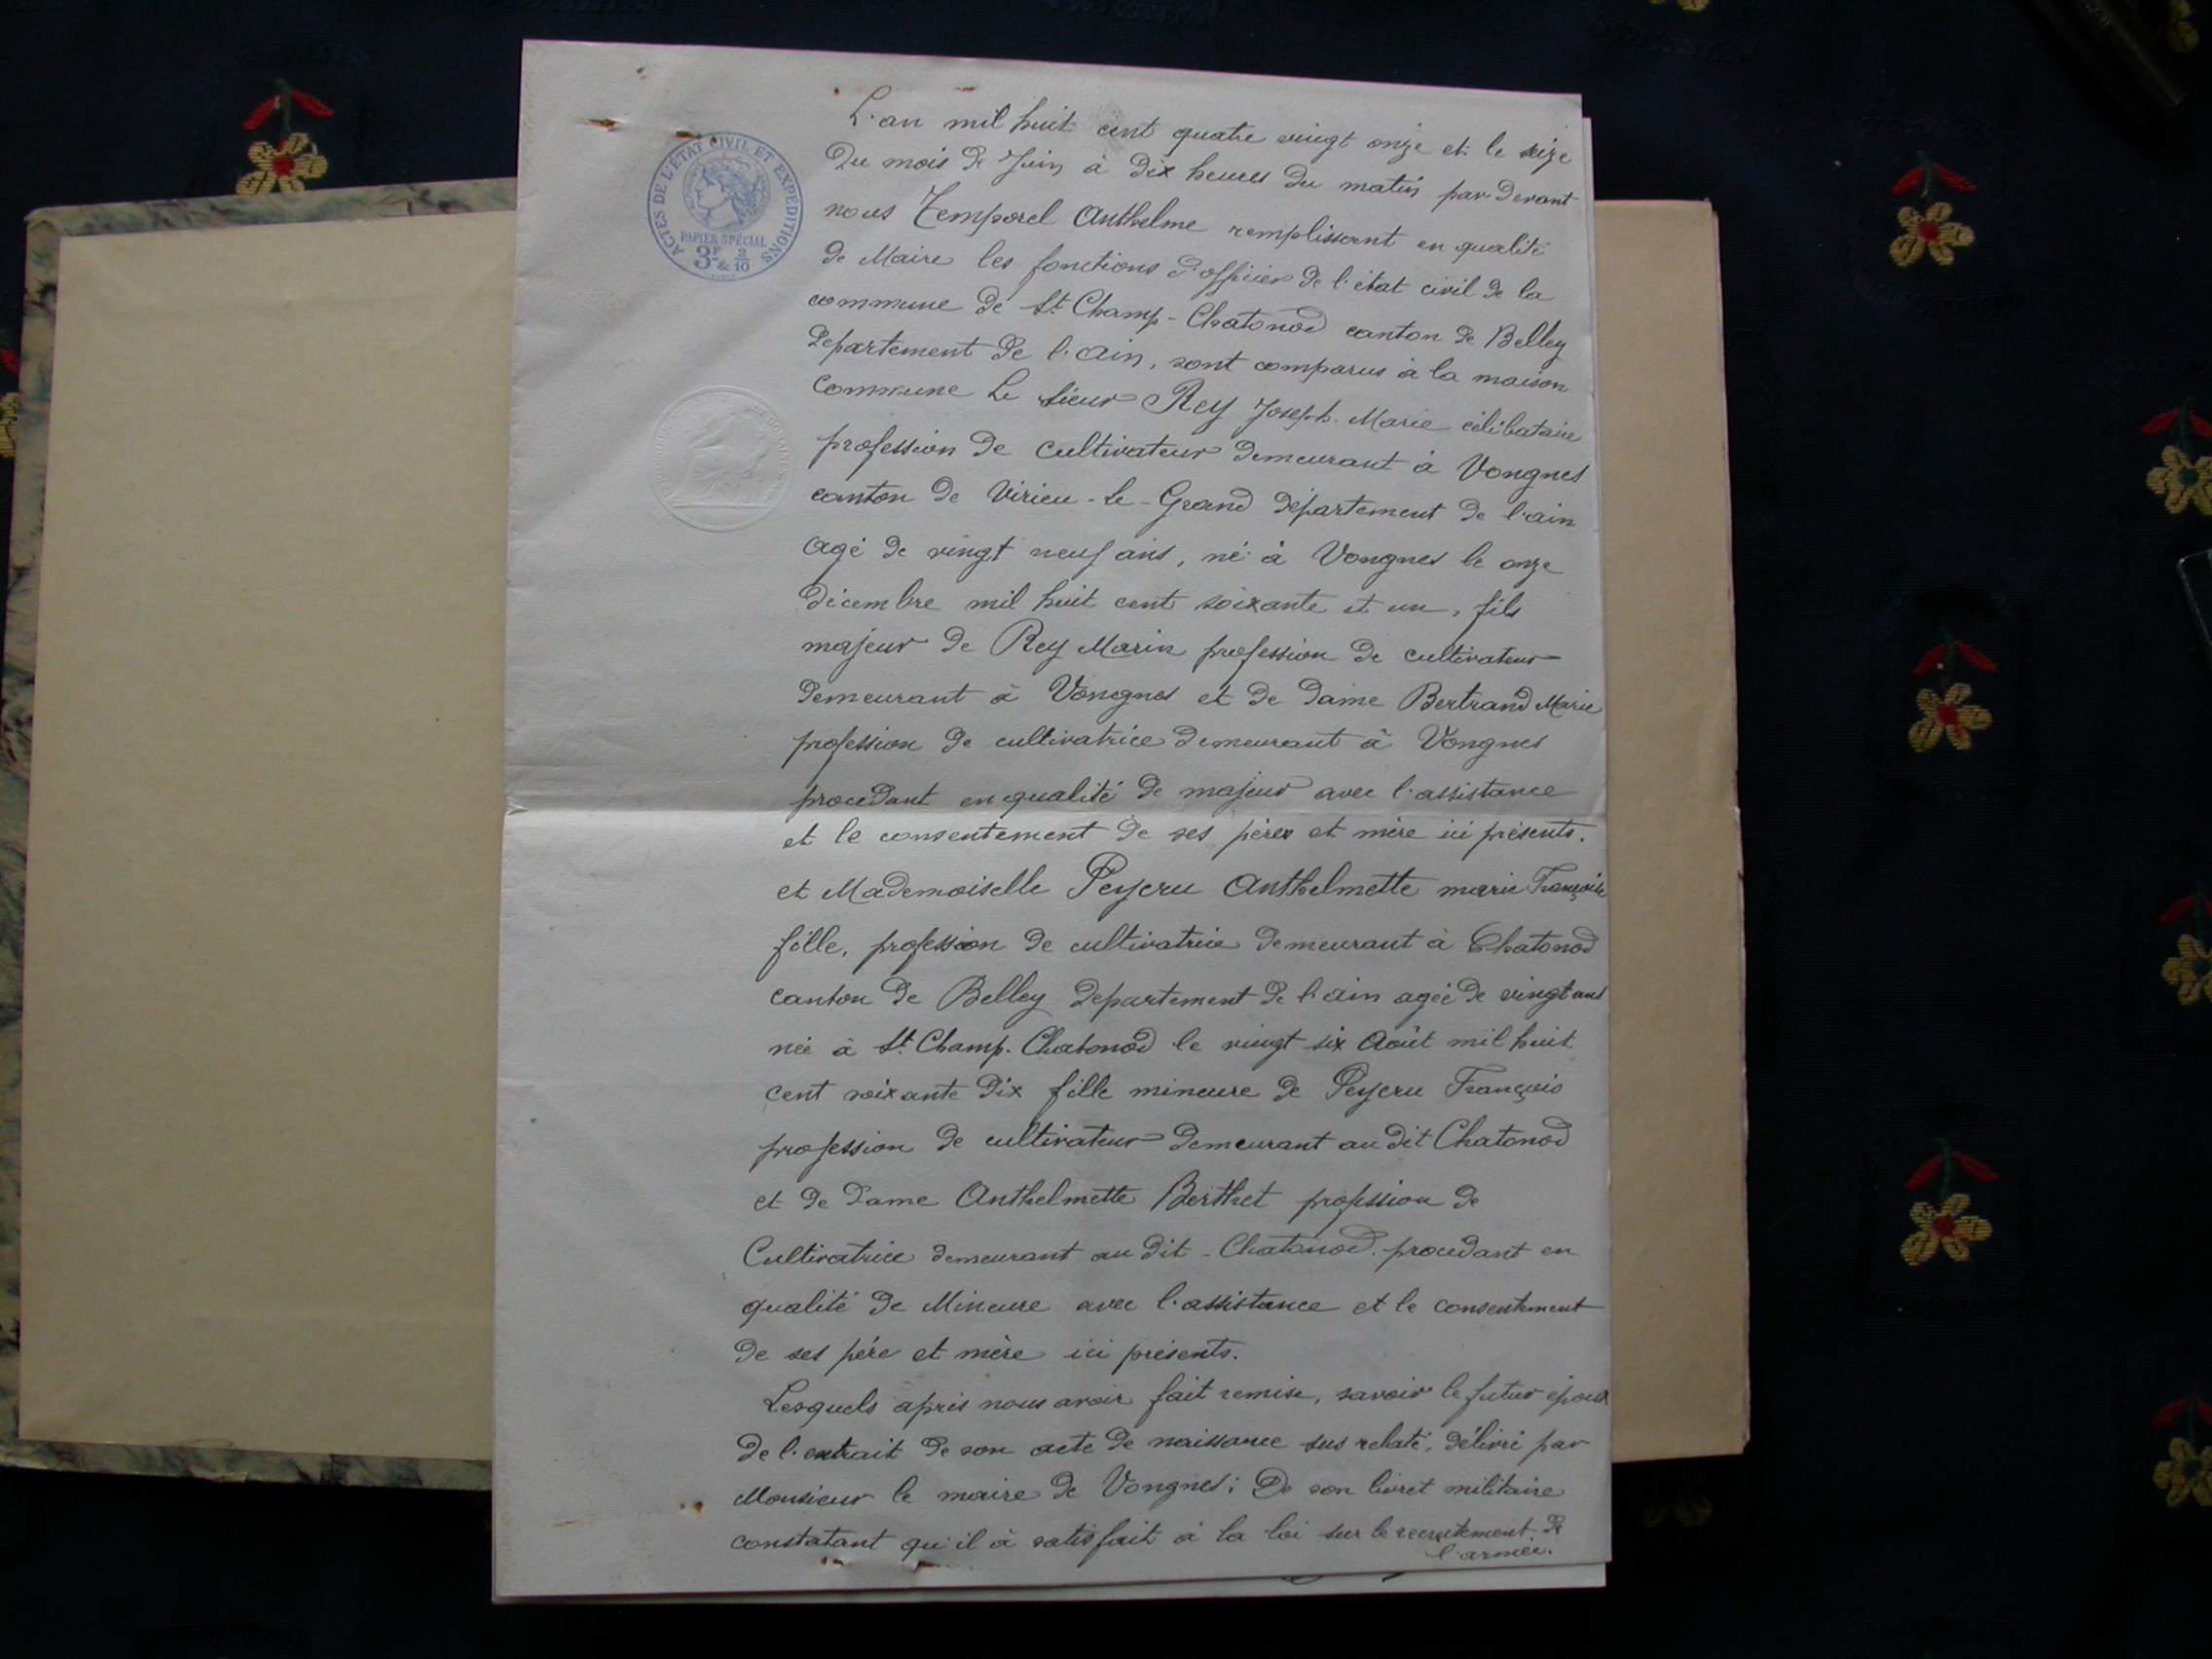 ACTES DE L'ÉTAT CIVIL ET EXPÉDITIONS
PAPIER SPÉCIAL
3F & 2/10
L'an mil huit cent quatre vingt onze et le seize
Du mois de Juin à Dix heures du matin par devant
nous Temporel Anthelme remplissant en qualité
de Maire les fonctions d'officier de l'état civil de la
commune de St Champ-Chatonod canton de Belley
Departement de l'ain, sont comparus à la maison
Commune Le sieur Rey Joseph. Marie célibataire
profession de cultivateur demeurant à Vongnes
canton de Virieu-Le-Grand département de l'ain
agé de vingt neuf ans, né à Vongnes le onze
Décembre mil huit cent soixante et un, fils
majeur de Rey Marin profession de cultivateur
demeurant à Vongnes et de Dame Bertrand Marie
profession de cultivatrice demeurant à Vongnes
procedant en qualité de majeur avec l'assistance
et le consentement de ses pères et mère ici présents.
et Mademoiselle Peyeru Anthelmette marie Françoise
fille, profession de cultivatrice demeurant à Chatonod
canton de Belley departement de l'ain agée de vingt ans
née à St Champ. Chatonod le vingt six Août mil huit
cent soixante dix fille mineure de Peyeru François
profession de cultivateur demeurant au dit Chatonod
et de Dame Anthelmette Berthet profession de
Cultivatrice demeurant au dit-Chatonod. procedant en
qualité de Mineure avec l'assistance et le consentement
de ses père et mère ici présents.
Lesquels après nous avoir fait remise, savoir le futur époux
De l'extrait de son acte de naissance sus relaté, délivré par
Monsieur le maire de Vongnes; De son livret militaire
constatant qu'il à satisfait à la loi sur le recrutement de
l'armée.